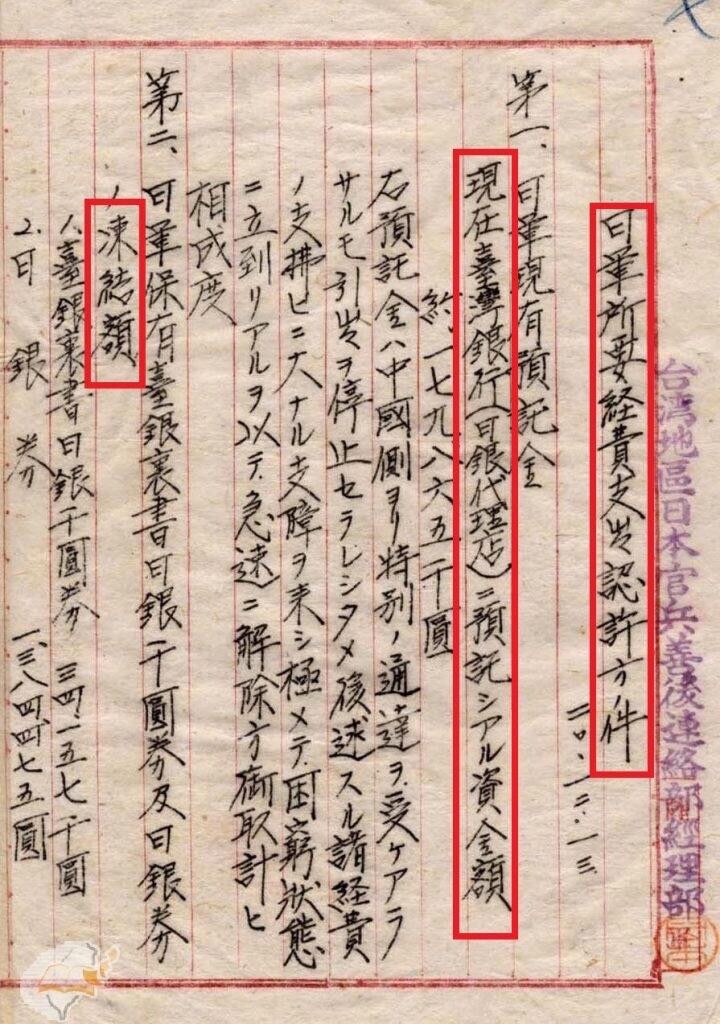 台湾地區日本官兵善後連絡部經理部
日軍所要経費支出認許方ノ件
二〇、一二、一三
第一、日軍現有預託金
現在臺灣銀行(日銀代理店)ニ預託シアル資金額
約一七九八六五千圓
右預託金ハ中國側ヨリ特別ノ通達ヲ受ケアラ
サルモ引出ヲ停止セラレシタメ後述スル諸経費
ノ支拂ヒニ大ナル支障ヲ来シ極メテ困窮狀態
ニ立到リアルヲ以テ急速ニ解除方御取計ヒ
相成度
第二、日軍保有臺銀裏書日銀千圓券及日銀券
ノ凍結額
1.臺銀裏書日銀千圓券 三四、一五七千圓
2.日銀券 一、三八四、四七五圓